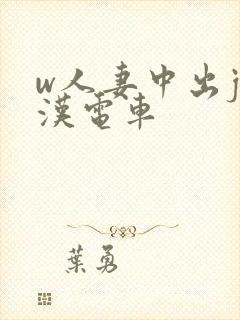 w人妻中出j
漢電車
葉勇